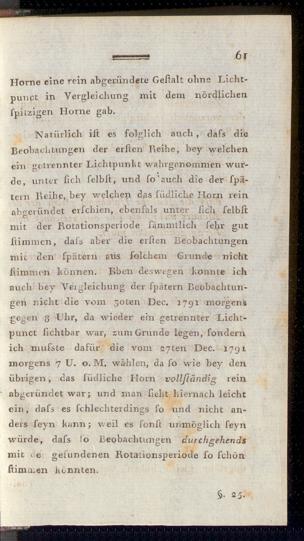 61
Horne eine rein abgeründete Geſtalt ohne Licht-
punct in Vergleichung mit dem nördlichen
ſpitzigen Horne gab.
Natürlich iſt es folglich auch, daſs die
Beobachtungen der erſten Reihe, bey welchen
ein getrennter Lichtpunkt wahrgenommen wur-
de, unter ſich ſelbſt, und ſo auch die der ſpä-
tern Reihe, bey welchen das ſüdliche Horn rein
abgeründet erſchien, ebenfals unter ſich ſelbſt
mit der Rotationsperiode ſämmtlich ſehr gut
ſtimmen, daſs aber die erſten Beobachtungen
mit den ſpätern aus ſolchem Grunde nicht
ſtimmen können. Eben deswegen konnte ich
auch bey Vergleichung der ſpätern Beobachtun-
gen nicht die vom 30ten Dec. 1791 morgens
gegen 8 Uhr, da wieder ein getrennter Licht-
punct ſichtbar war, zum Grunde legen, ſondern
ich muſste dafür die vom 27ten Dec. 1791
morgens 7 U. 0. M. wählen, da ſo wie bey den
übrigen, das ſüdliche Horn vollſtändig rein
abgeründet war; und man ſieht hiernach leicht
ein, daſs es ſchlechterdings ſo und nicht an-
ders ſeyn kann; weil es ſonſt unmöglich ſeyn
würde, daſs ſo Beobachtungen durchgehends
mit der gefundenen Rotationsperiode ſo ſchön
ſtimmen könnten.
§. 25.